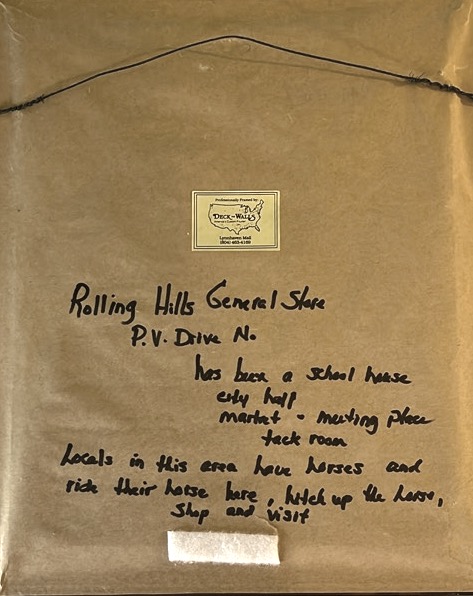 Professionally Framed by
DECK THE WALLS
Lynnhaven Mall
Rolling Hills General Store
P.V. Drive No
has been a school house
city hall
market - meeting place
tack room
Locals in this area have horses and
ride their horse here, hitch up the horse,
shop and visit